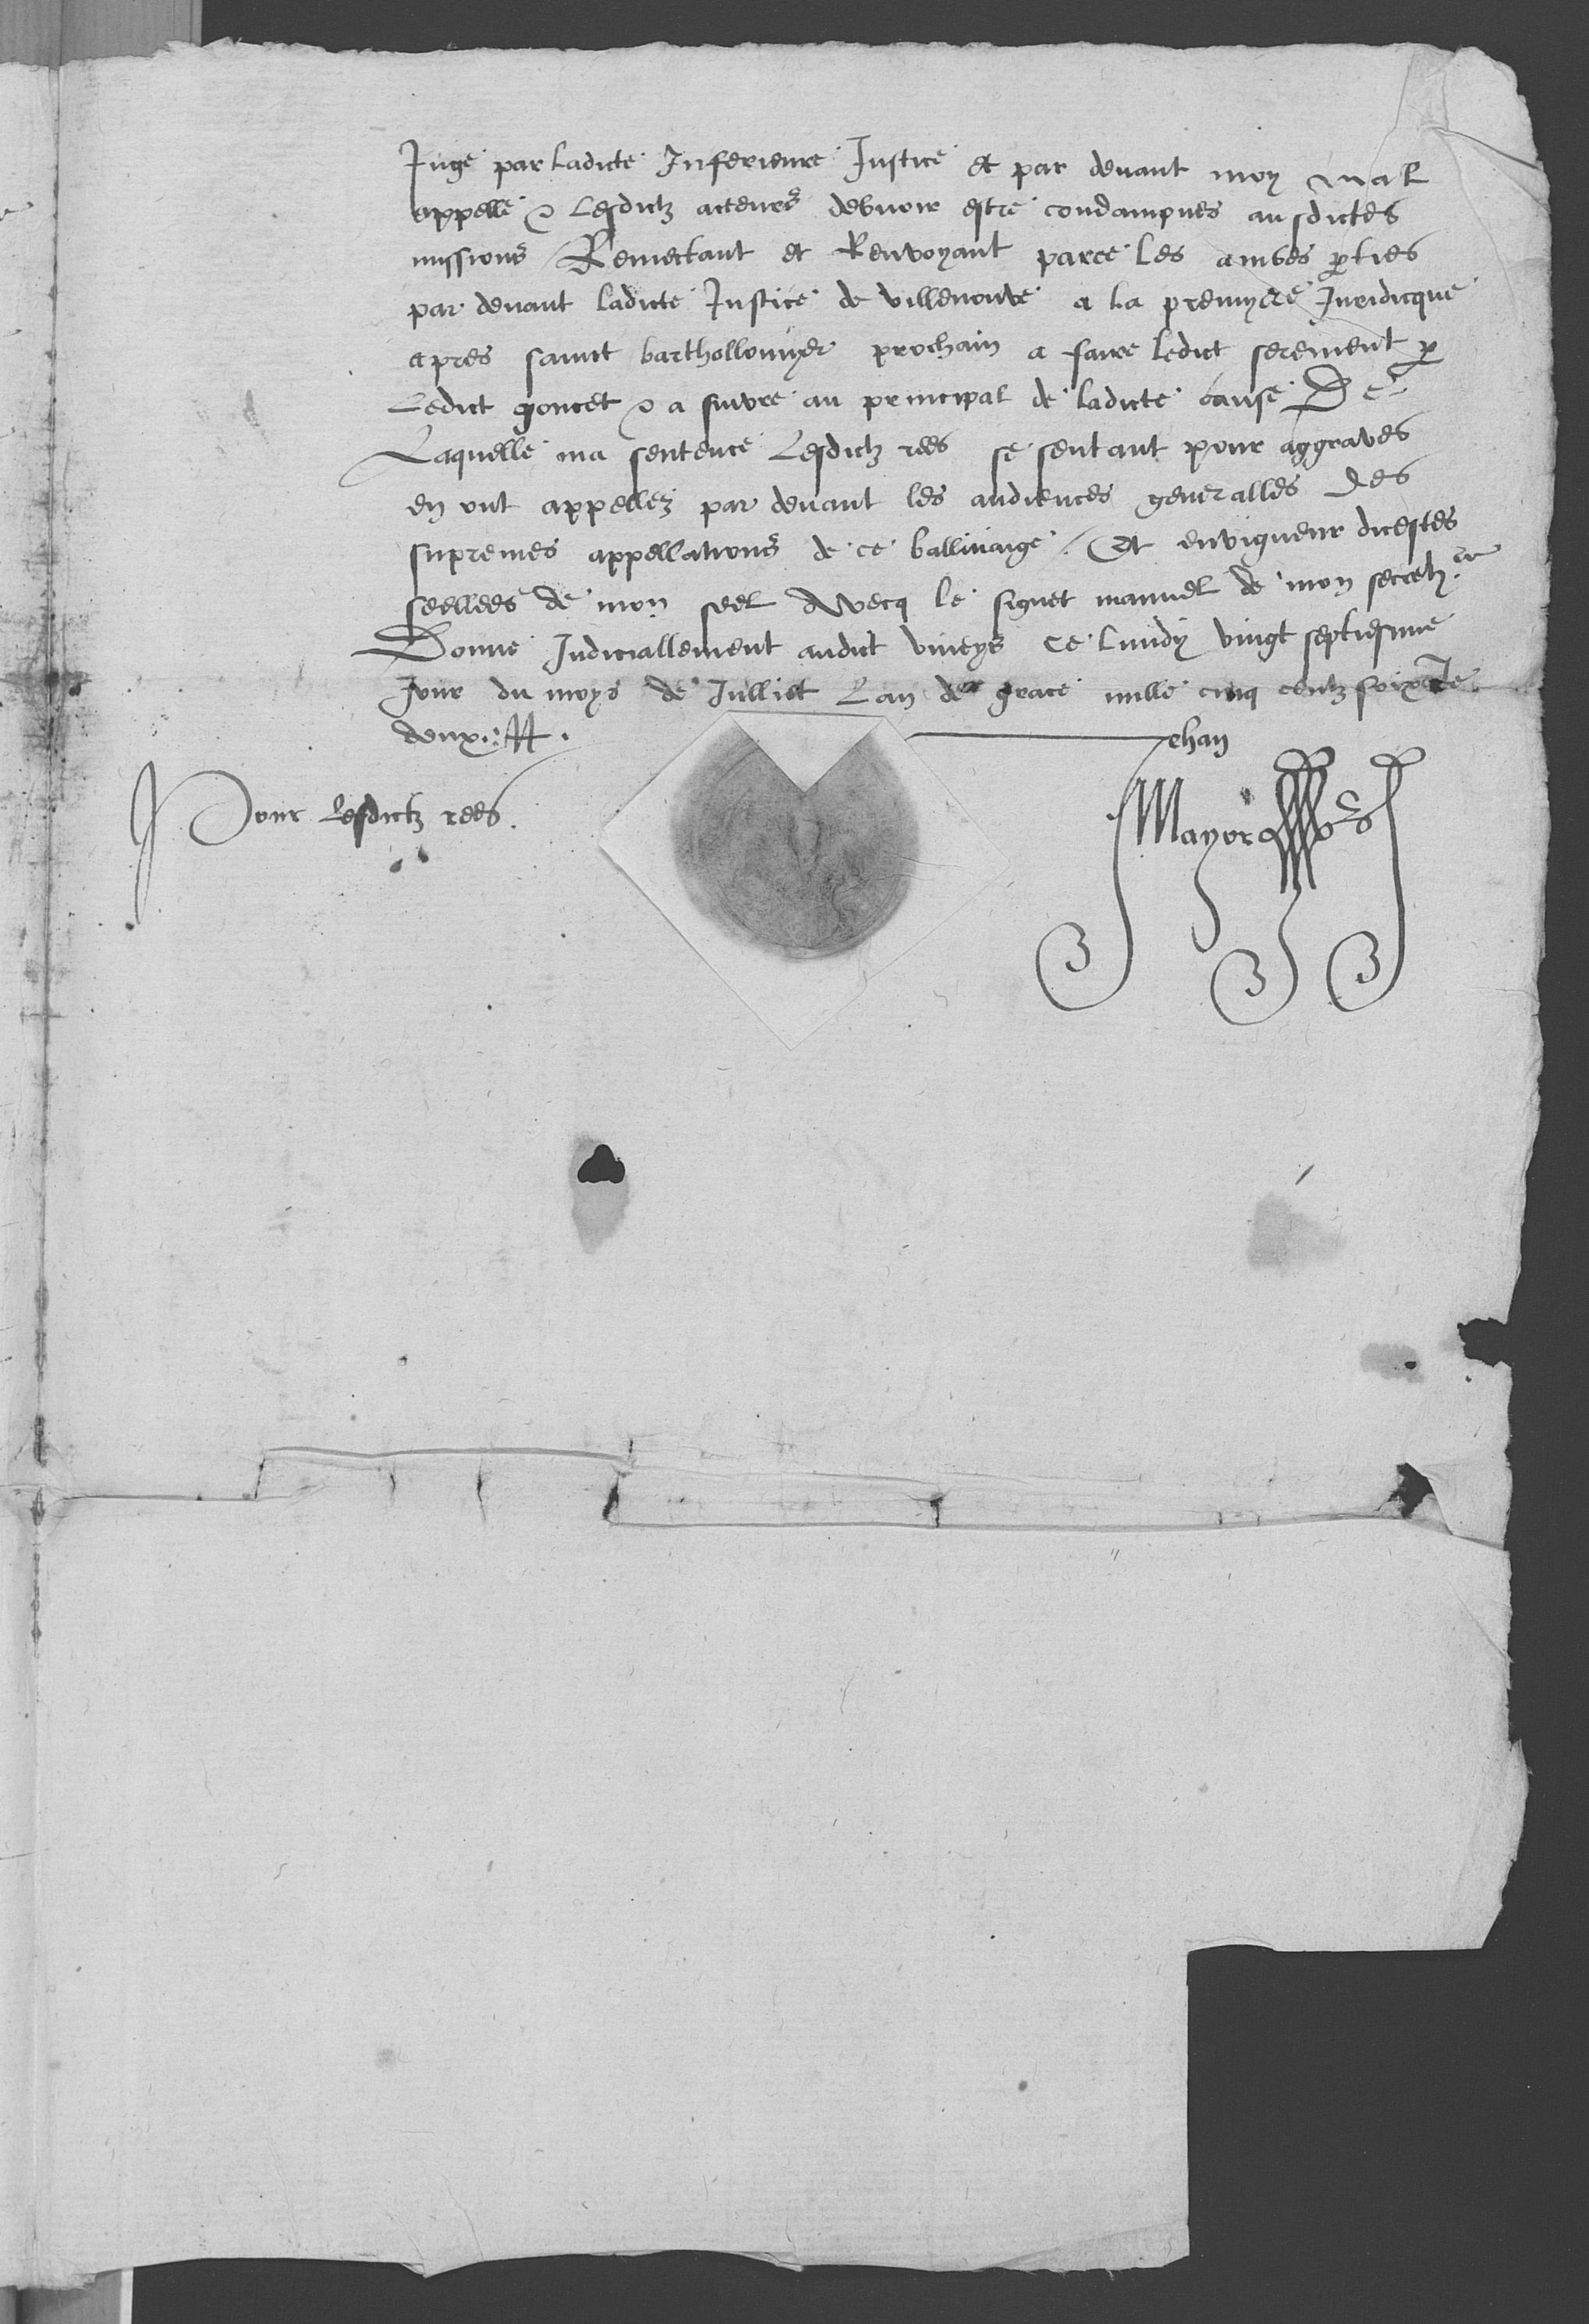 Juge par ladicte Inferieure Justice et par devant moy mal
appelle & lesdictz acteurs debvoir estre condampnes ausdictes
missions Remectant et Renvoyant parce les ambes p̄ties
par devant ladicte Justice de villenouve a la premyere Juridicque
apres sainct barthollomyer prochain a faire ledict serement p̄
Ledict goncet & a suivre au principal de ladicte cause De
Laquelle ma sentence lesdictz rees se sentant pour aggraves
en ont appellez par devant les audiences generalles des
supremes appellations de ce balliaige. Et en vigueur dicestes
seellees de mon seel Avecq le signet manuel de mon secret.re
Donne Judiciallement audict viveys Ce lundy vingt septiesme
Jour du moys de Julliet Lan de grace mille cinq centz soixāte
deux.
Jehan
Mayor
Pour lesdictz rees.